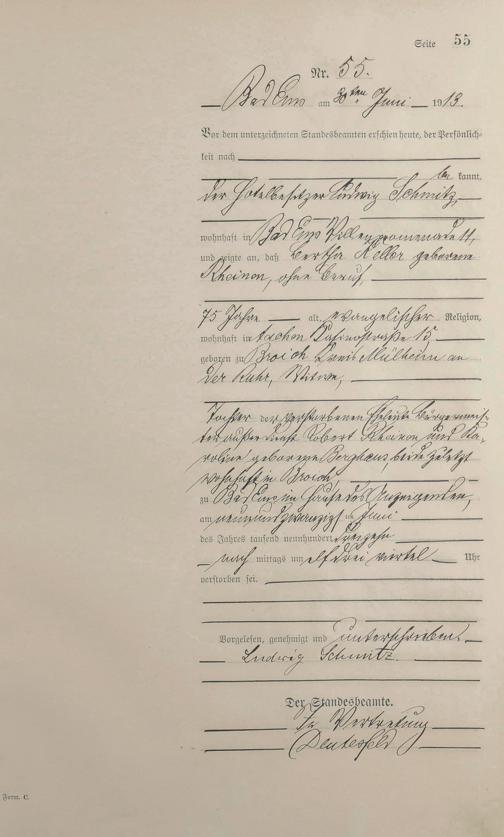 Seite 55
Nr. 55.
Bad Ems am 30ten Juni 1913.
Vor dem unterzeichneten Standesbeamten erschien heute, der Persönlich-
keit nach
be kannt,
der Hotelbesitzer Ludwig Schmitz,
wohnhaft in Bad Ems Villenpromenade 11,
und zeigte an, daß Bertha Keller geborene
Rheinen, ohne Beruf,
75 Jahre alt, evangelischer Religion,
wohnhaft in Aachen Casinostraße 15,
geboren zu Broich Kreis Mülheim an
der Ruhr, Witwe,
Tochter der verstorbenen Eheleute Bürgermeis-
ter außer Dienst Robert Rheinen und Ka-
roline geborene, beide zuletzt
wohnhaft in Broich,
zu Bad Ems im Hause des Anzeigenden,
am neunundzwanzigsten Juni
des Jahres tausend neunhundert dreizehn
nach mittags um elf drei viertel Uhr
verstorben sei.
Vorgelesen, genehmigt und unterschrieben.
Ludwig Schmitz.
Der Standesbeamte.
In Vertretung
Form. C.